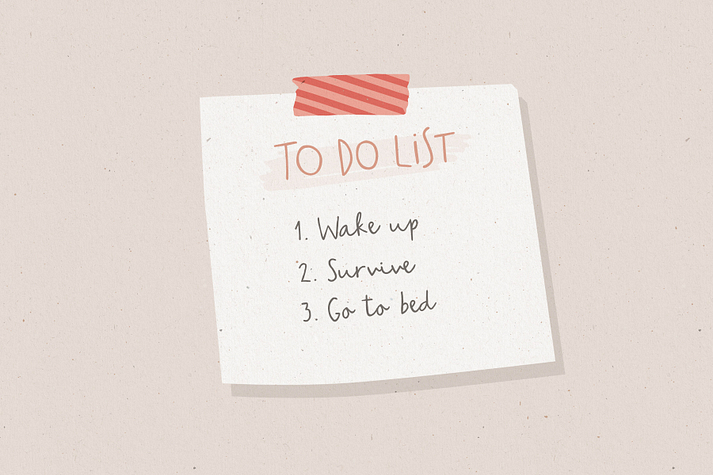 TO DO LiST
1. Wake up
2. Survive
3. Go to bed